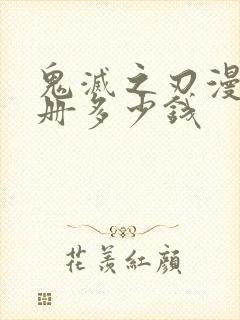 鬼滅之刃漫
册多少錢
花羨紅顏